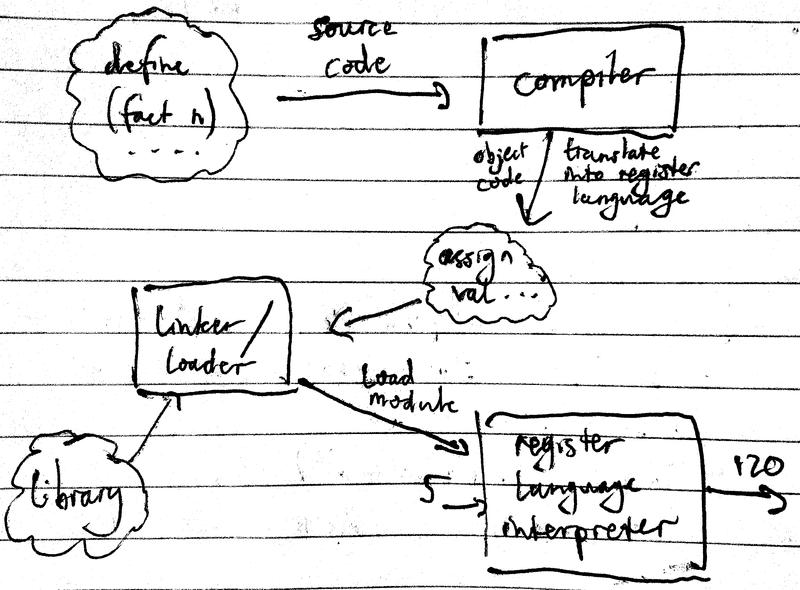 define
(fact n)
. . . .
source
code
compiler
object
code
translate
into register
language
assign
val ...
linker /
loader
load
module
library
5
register
language
interpreter
120